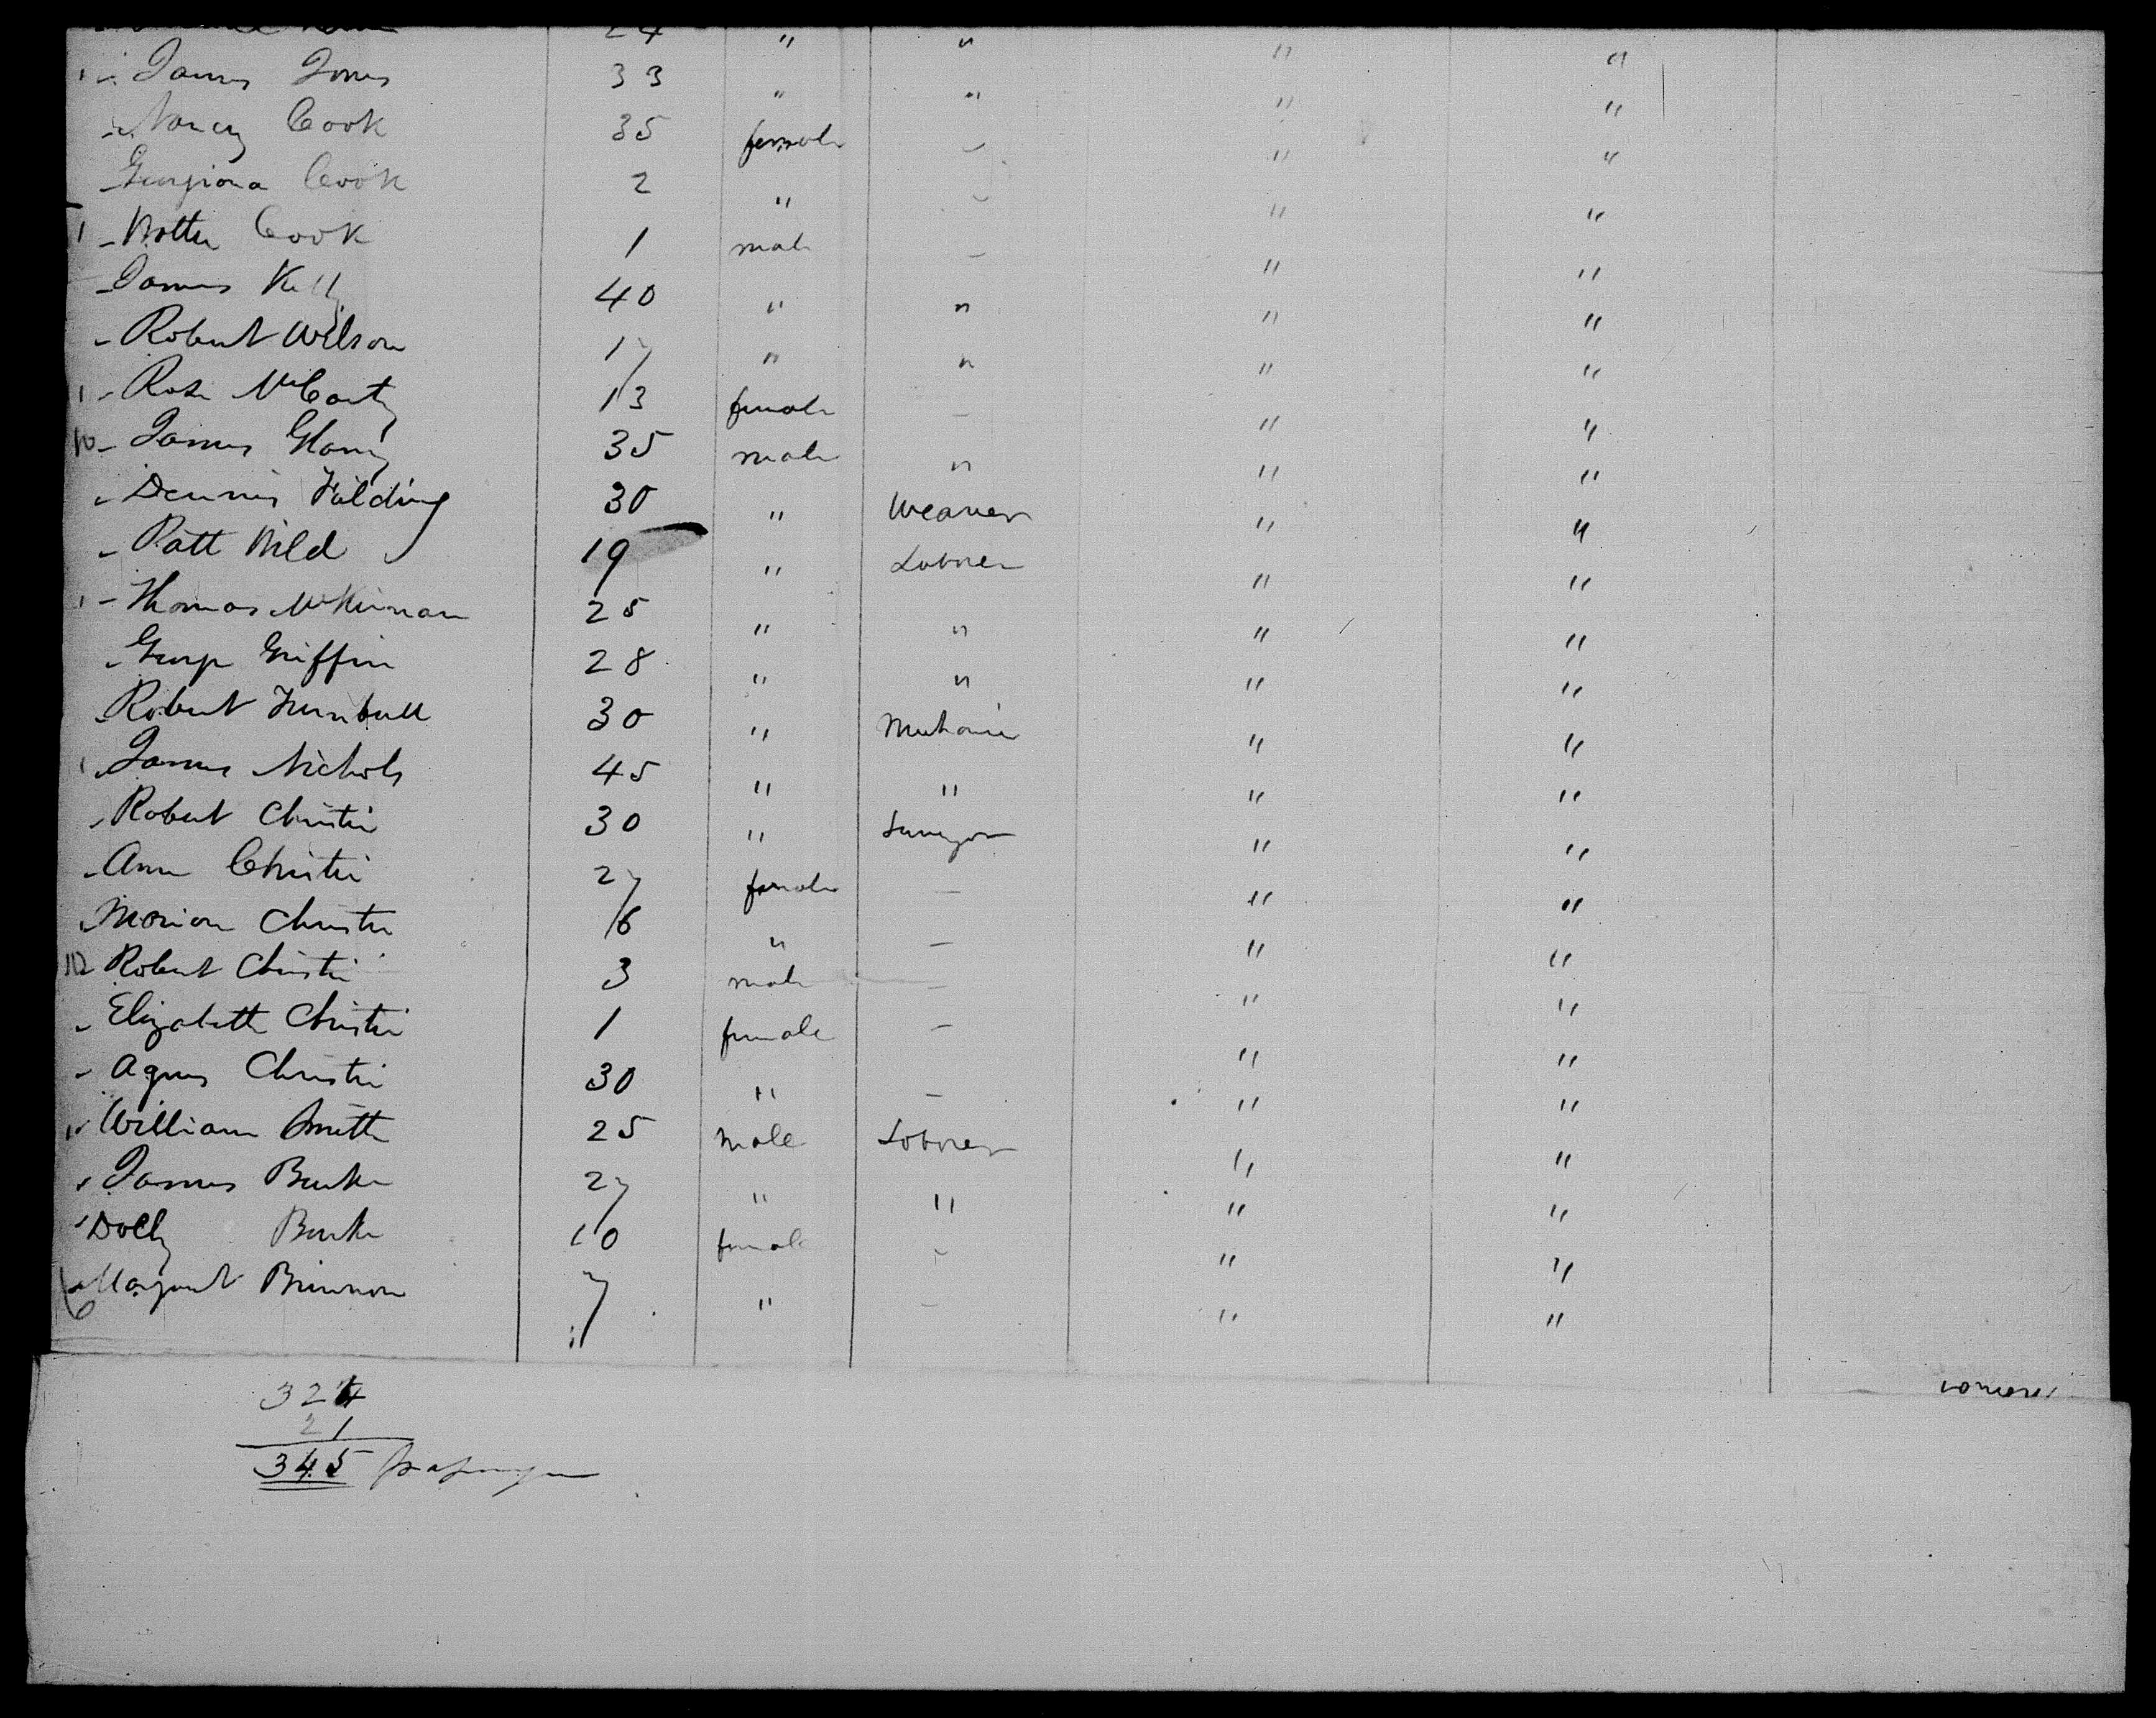 24 " " " "
James Jones 33 " " " "
Nancy Cook 35 female - " "
Georgiana Cook 2 " - " "
Cook 1 male - " "
James Kelly 40 " " " "
Robert Wilson 17 " " " "
Rose McCarty 13 female - " "
James 35 male " " "
Dennis Fielding 30 " Weaver " "
Patt 19 " Laborer " "
Thomas McKiernan 25 " " " "
George Griffin 28 " " " "
Robert Turnbull 30 " Mechanic " "
James Nichols 45 " " " "
Robert Christie 30 " Surveyor " "
Ann Christie 27 female - " "
Marion Christie 6 " - " "
Robert Christie 3 male - " "
Elizabeth Christie 1 female - " "
Agnes Christie 30 " - " "
William Smith 25 male Laborer " "
James Burke 27 " " " "
Dolly Burke 10 female - " "
Margaret Brennan 7 " - " "
324
21
345 passengers